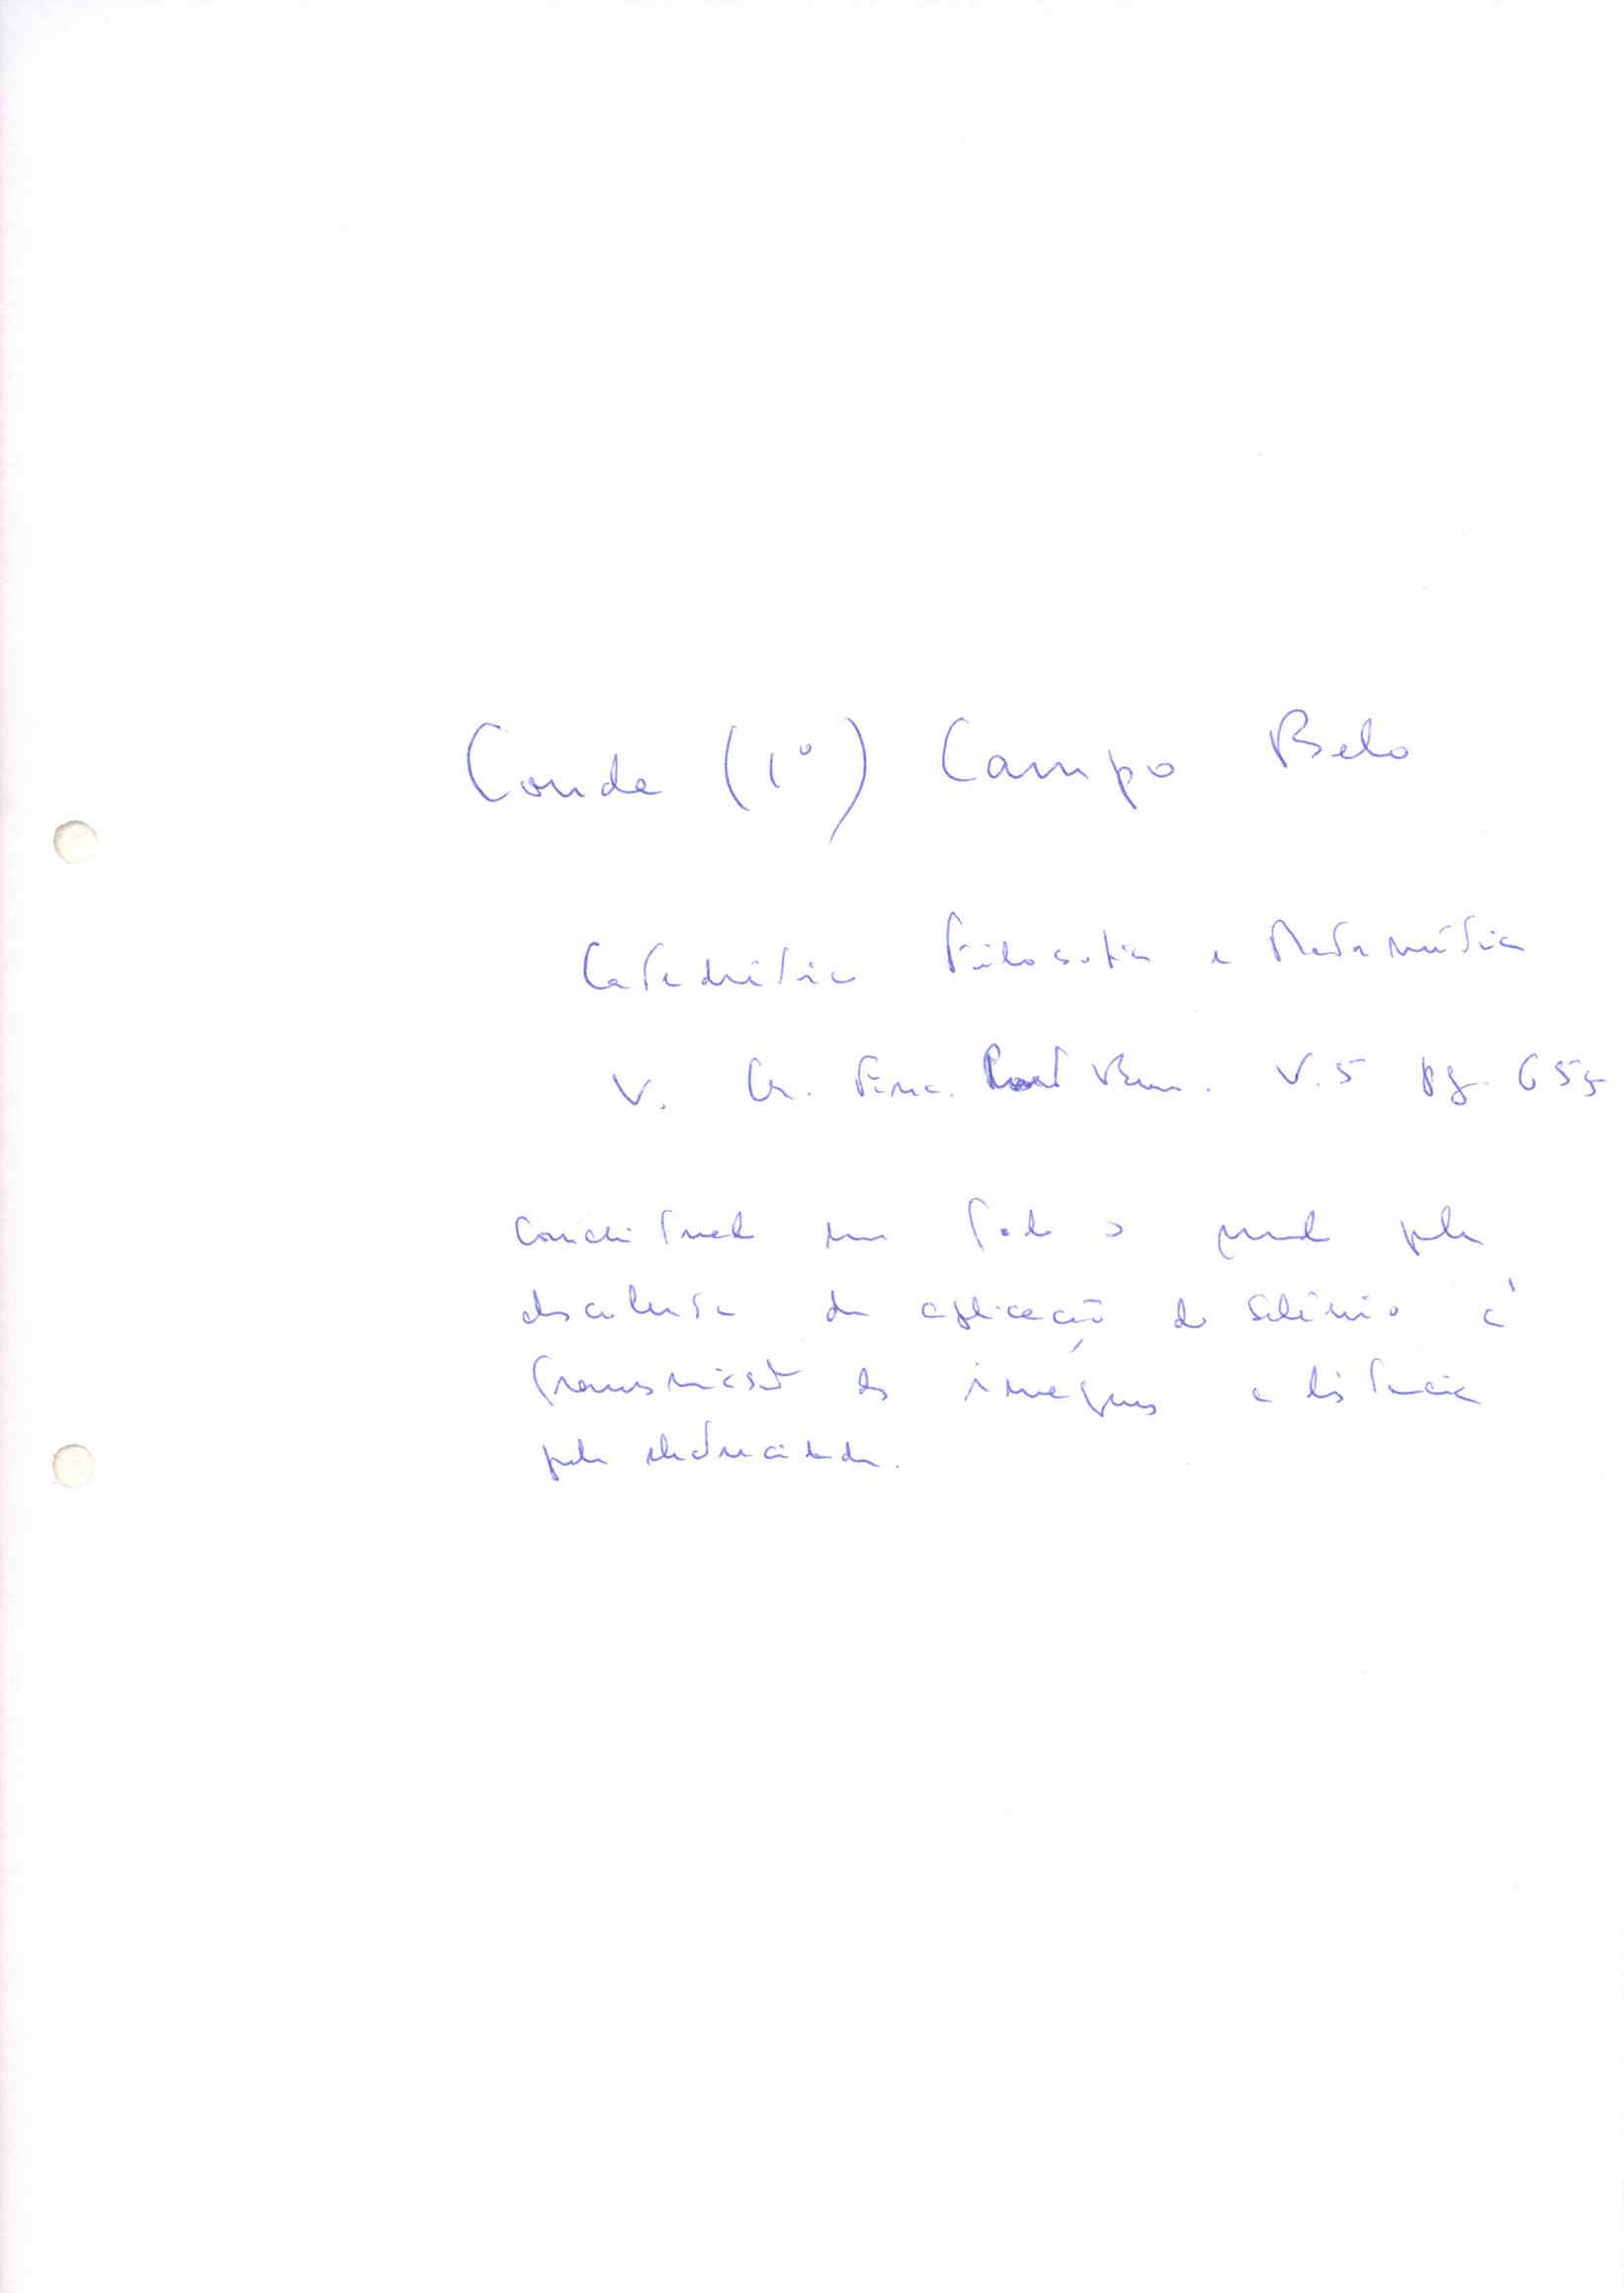 Conde (1º) Campo Belo
Catedrático Filosofia e Matemática
V. Gr. Enc. Port Bras. V.5 pg. 655
Conceituado em todo o mundo pela
descoberta da aplicação do Selénio à
transmissão de imagens a distancia
pela electricidade.